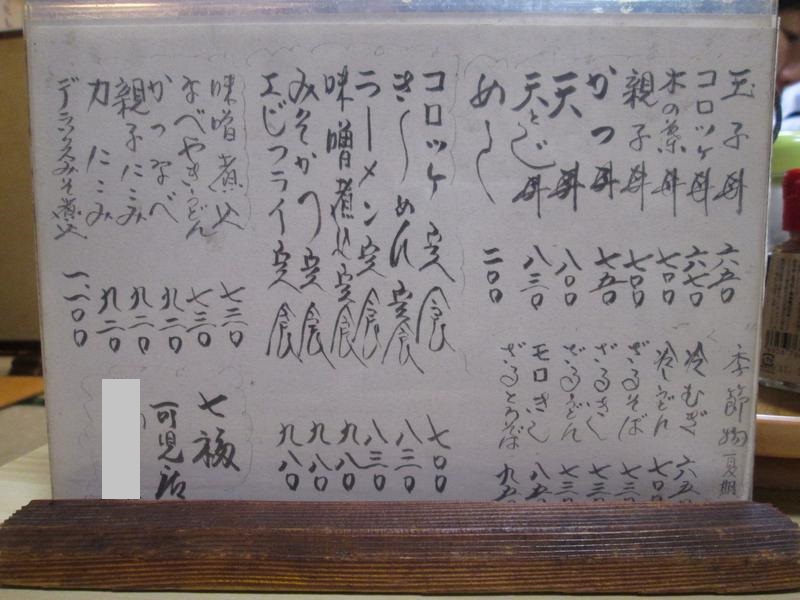 玉子丼 六五〇
コロッケ丼 六七〇
木の葉丼 七〇〇
親子丼 七〇〇
かつ丼 七五〇
天丼 八〇〇
天とじ丼 八三〇
めし 二〇〇
季節物 夏期
冷むぎ 六五〇
冷しうどん 七〇〇
ざるそば 七三〇
ざるきし 七三〇
ざるうどん 七三〇
モロきし 八五
ざるとろそば 九五
コロッケ定食 七〇〇
きしめん定食 八三〇
ラーメン定食 八三〇
味噌煮込定食 九八〇
みそかつ定食 九八〇
エビフライ定食 九八〇
味噌煮込 七三〇
なべやきうどん 七三〇
かつなべ 九二〇
親子にこみ 九二〇
力にこみ 九二〇
デラックスみそ煮込 一、一〇〇
七福
可児店